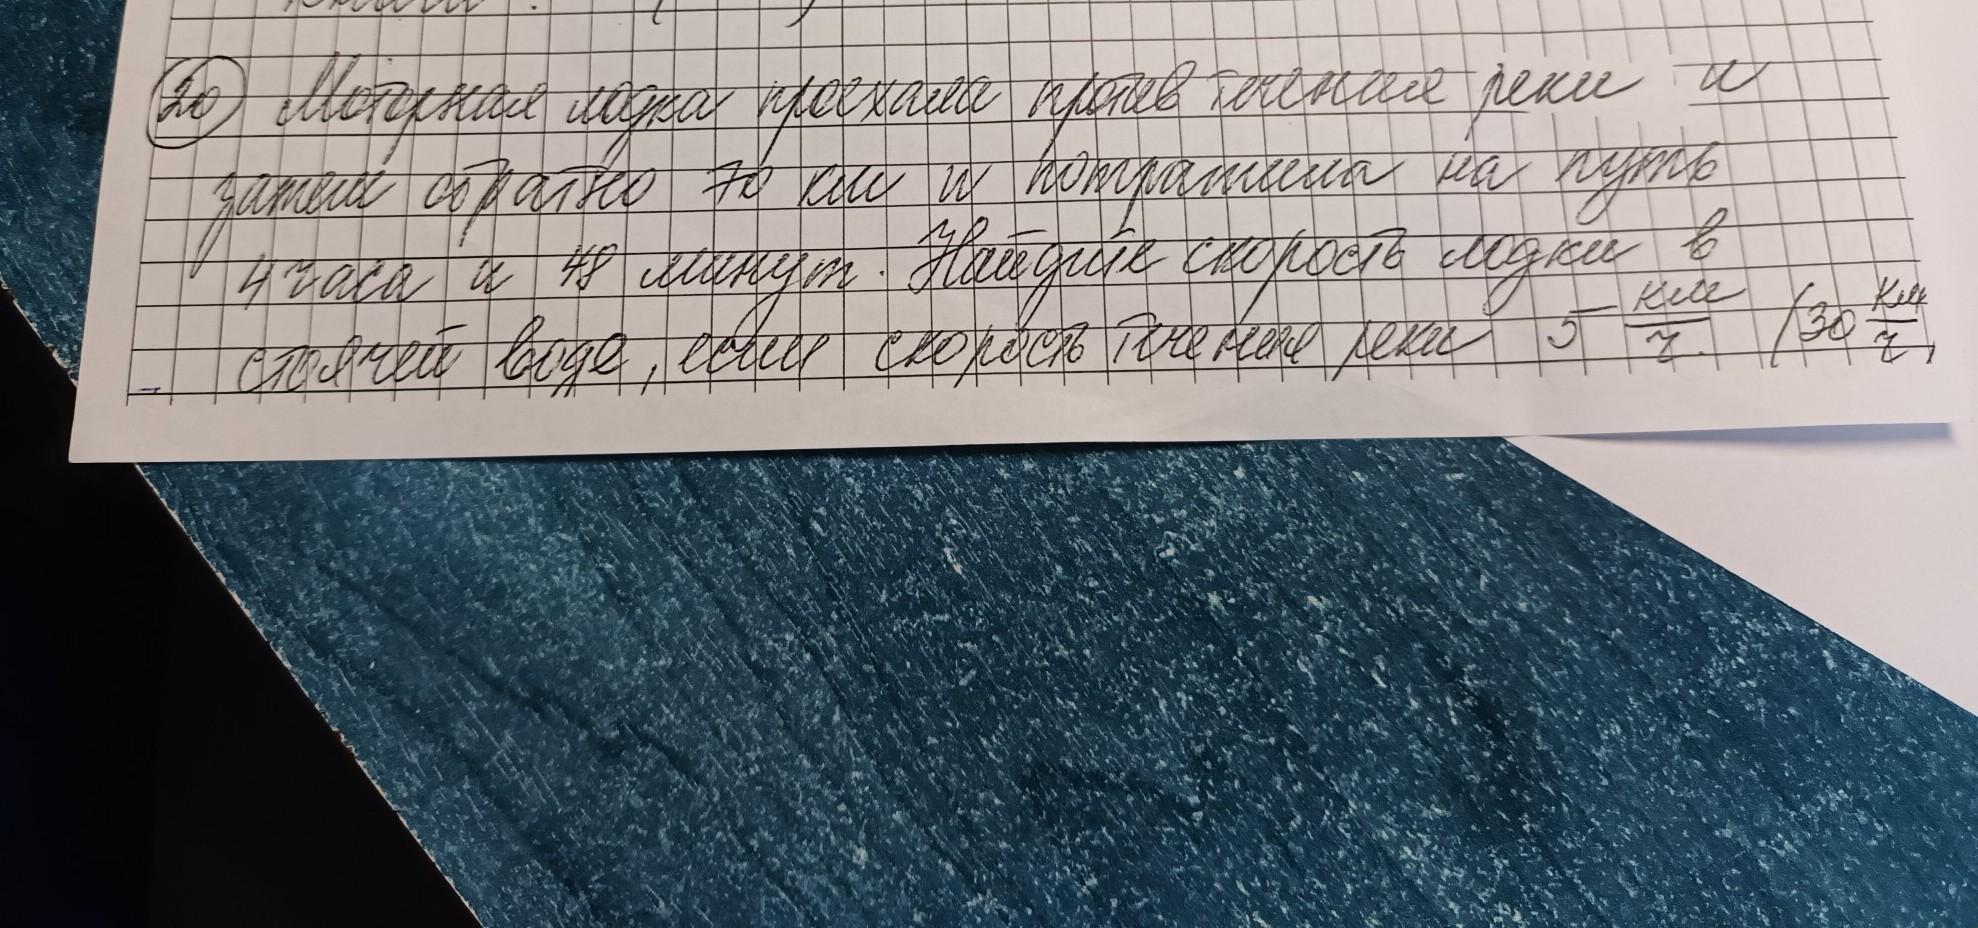 20 Моторная лодка проехала против течения реки и
затем обратно 70 км и потратила на путь
4 часа и 48 минут. Найдите скорость лодки в
стоячей воде, если скорость течения реки 5 км/ч. (30 км/ч,